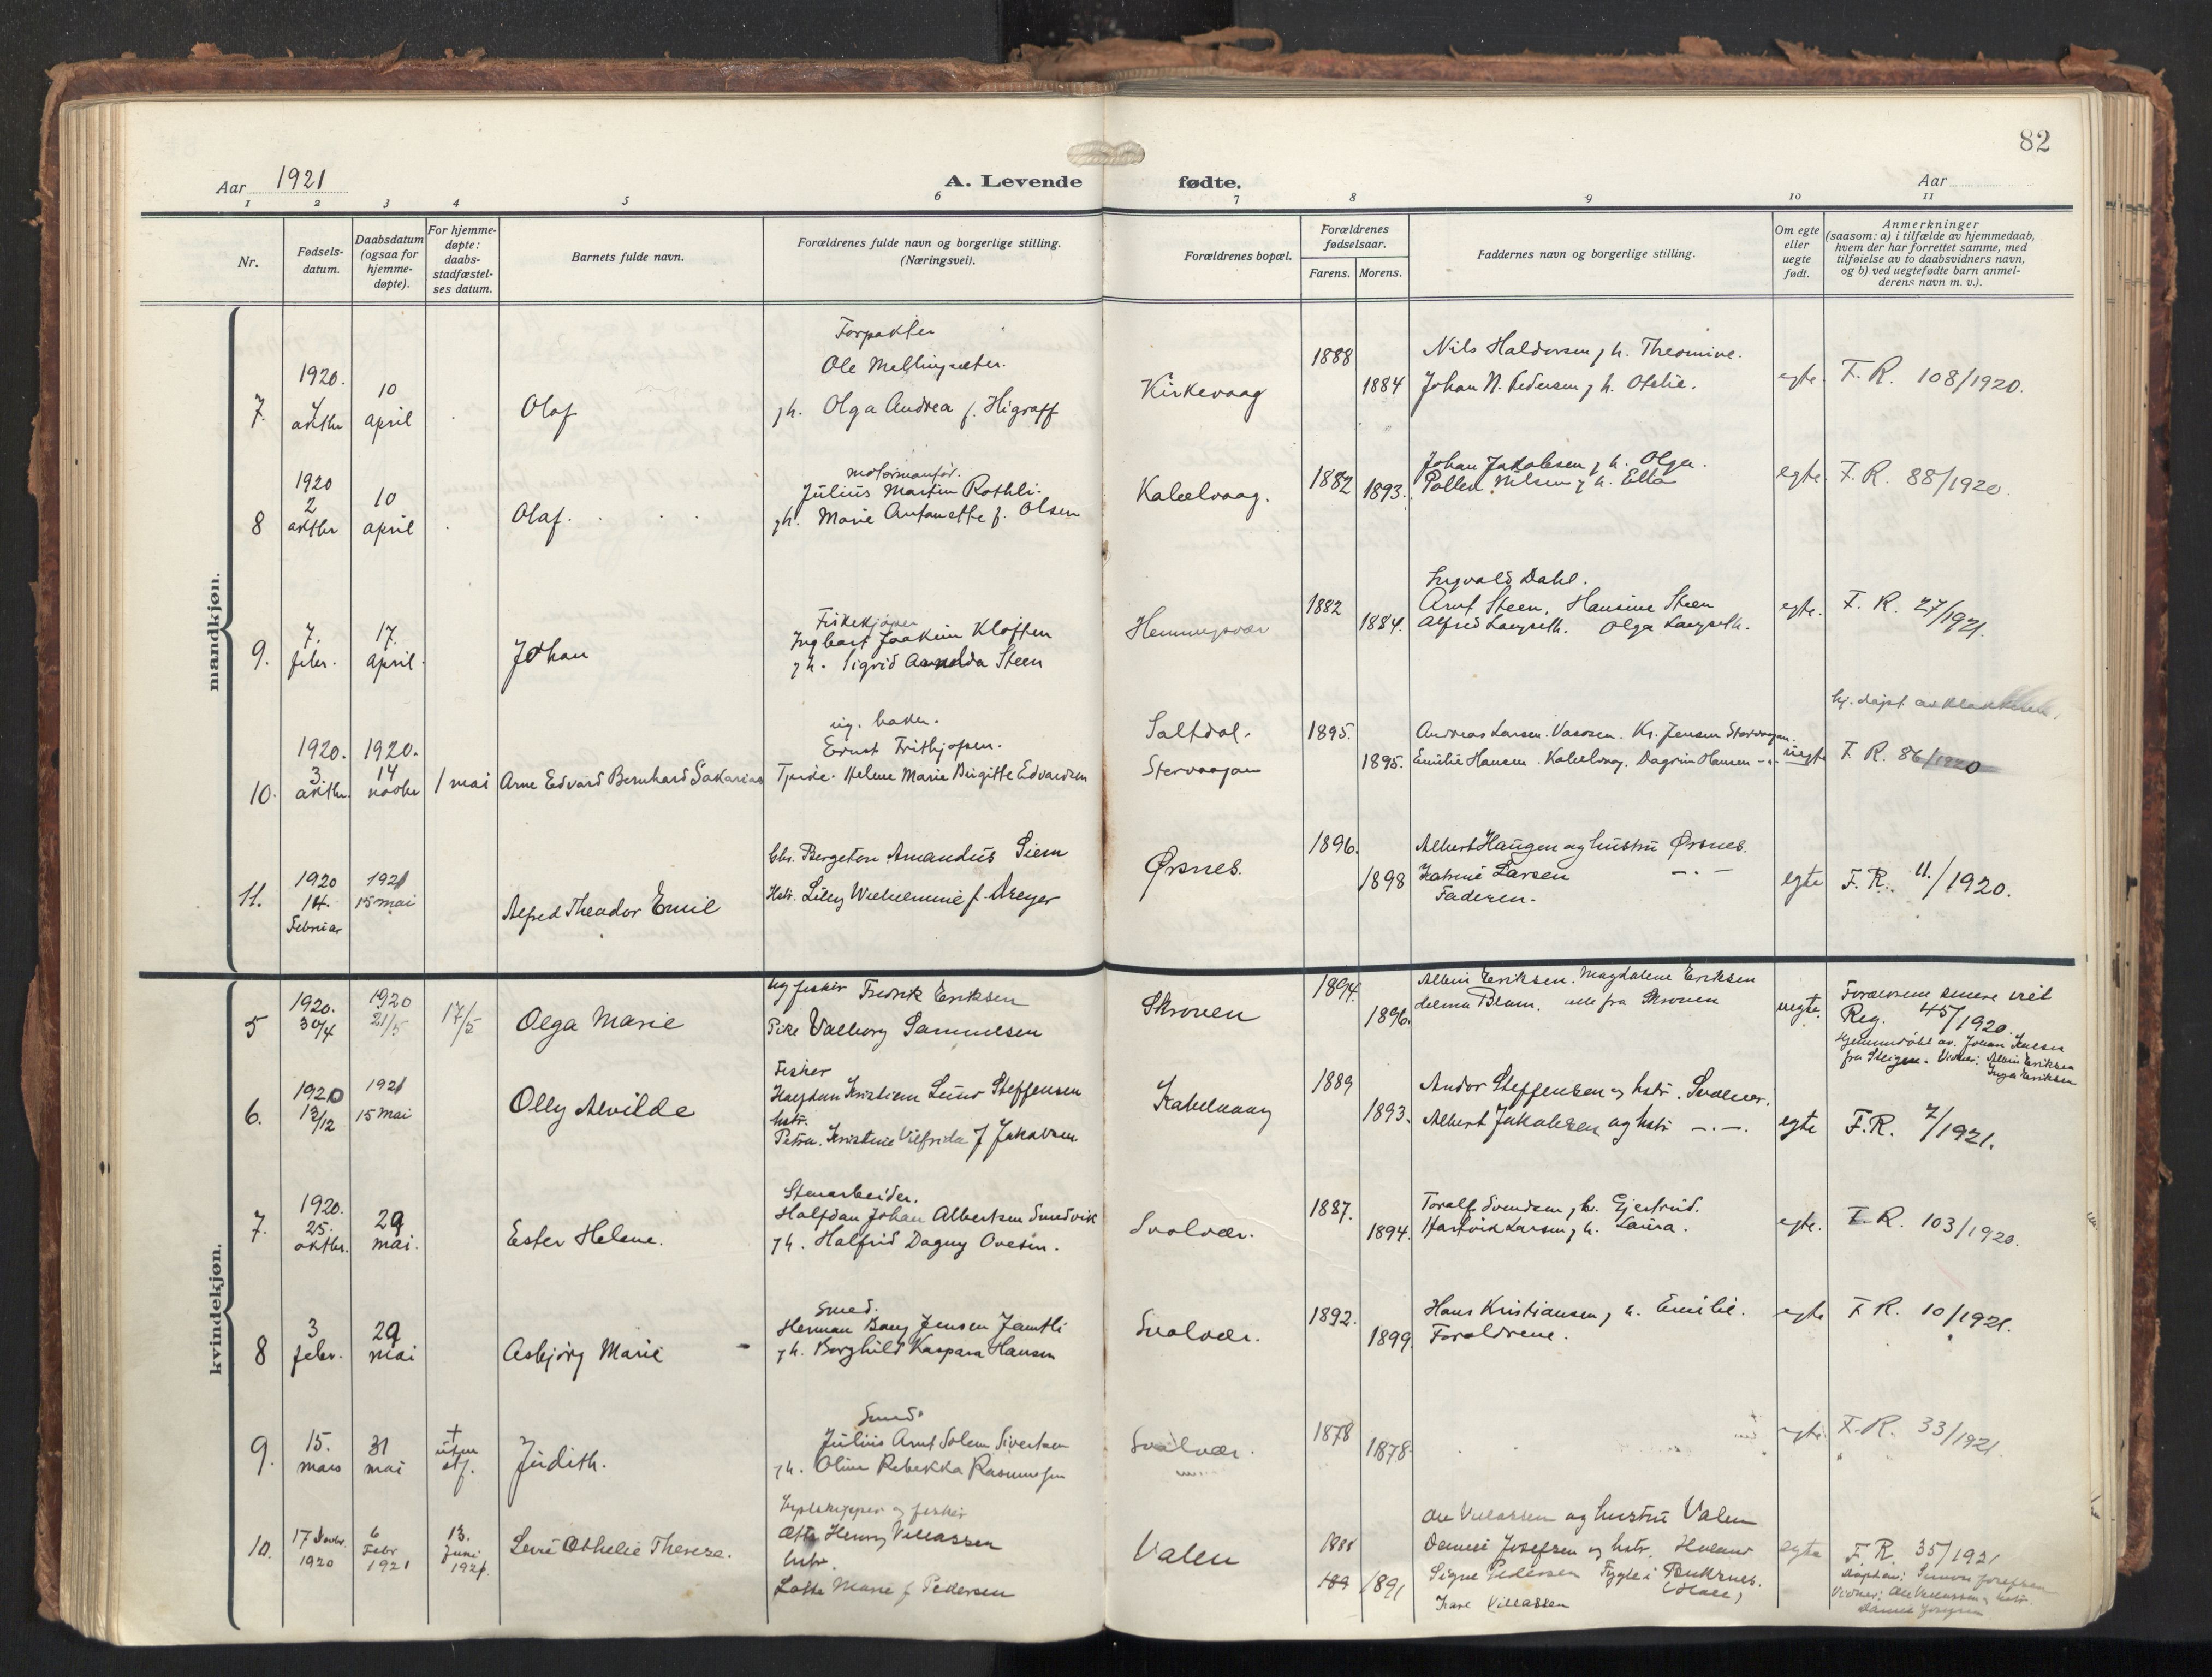 82
Aar 1921
A. Levende fødte.
Aar
1 2 3 4 5 6 7 8 9 10 11
Nr.
Fødsels-
datum.
Daabsdatum
(ogsaa for
hjemme-
døpte).
For hjemme-
døpte:
daabs-
stadfæstel-
ses datum.
Barnets fulde navn.
Forældrenes fulde navn og borgerlige stilling.
(Næringsvei).
Forældrenes bopæl.
Forældrenes
fødselsaar.
Farens. Morens.
Faddernes navn og borgerlige stilling.
Om egte
eller
uegte
født.
Anmerkninger
(saasom: a) i tilfælde av hjemmedaab,
hvem der har forrettet samme, med
tilføielse av to daabsvidners navn,
og b) ved uegtefødte barn anmel-
derens navn m. v.).
mandkjøn.
7.
1920.
7
oktbr
10
april
Olaf
Forpakter
Ole Mellingsæter.
h. Olga Andrea f. Higraff
Kirkevaag
1888
1884
Nils Haldorsen, h. Theomine.
Johan N. Pedersen, h. Otelie.
egte.
F. R. 108/1920.
8
1920
2
oktbr
10
april
Olaf.
Julius Martin Rothli.
h. Marie Antonette f. Olsen
Kabelvaag.
1882
1893.
Johan Jakobsen, h. Olga.
Nilsen, h. Ella
egte.
F. R. 88/1920.
9.
7.
febr.
17.
april.
Johan
Fiskekjøper
Ingbart Joakim Kloften
h. Sigrid Arnolda Steen
Henningsvær
1882
1884.
Ingvald Dahl.
Arnt Steen, Hansine Steen
Alfred Langseth. Olga Langseth.
egte.
F. R. 27/1921.
10.
1920.
3
oktbr.
1920.
14
novbr
1 mai
Arne Edvard Bernhard Sakarias
ug. baker.
Ernst Frithjofsen.
Helene Marie Birgitte Edvardsen
Saltdal.
Storvaagan
1895.
1895.
Andreas Larsen. Vaososen. Kr. Jensen Storvaagan.
Emilie Hansen. Kabelvaag. Dagrun Hansen -"-
uegte
hj. døpt av klokkeren.
F. R. 86/1920
11.
1920
14.
Februar
1921
15 mai
Alfred Theodor Emil
Bergeton Amandus Siem
Hstr. Lilly Wilhelmine f. Dreyer
Ørsnes.
1896.
1898
Albert Haugen og hustru Ørsnes.
Katrine Larsen -.-
Faderen.
egte
F. R. 11./1920.
kvindekjøn.
5
1920.
30/4
1920
21/5
17/5
Olga Marie
Ug fisker Fredrik Eriksen
Pike Valborg Samuelsen
Skroven
1894.
1896.
Albin Eriksen. Magdalene Eriksen
Helma Blom, alle fra Skroven
uegte.
Forældrene senere viet
Reg. 45/1920.
Hjemmedøbt av. Johan
fra Steigen. Vidner: Albin Eriksen
Inga Eriksen
6.
1920
13/12
1921
15 mai
Olly Alvilde
Fisker
Kristian Steffensen
hstr.
Petra. Kristine Vilfrida f Jakobsen
Kabelvaag
1889
1893.
Andor Steffensen og hstr. Svolvær.
Albert Jakobsen og hstr -.-.
egte
F.R. 7/1921.
7.
1920.
25.
oktbr.
29
mai.
Ester Helene.
Stenarbeider.
Halfdan Johan Albertsen Sundvik
h. Halfrid Dagny Ovesen.
Svolvær.
1887.
1894.
Toralf Svendsen, h. Gjertrud.
Hartvik Larsen, h. Laura.
egte.
F. R. 103/1920.
8
3
febr.
29
mai
Asbjørg Marie
Smed.
Herman Bang Jensen Jamtli
h. Borghild Kaspara Hansen
Svolvær.
1892.
1899.
Hans Kristiansen, h. Emilie.
Forældrene.
egte
F R. 10/1921.
9.
15.
mars
31
mai
†
uten
stf.
Judith.
Smed.
Julius Arnt Solem Sivertsen
h. Oline Rebekka Rasmussen
Svolvær.
1878
1878.
egte
F. R. 33/1921.
10.
17 Novbr.
1920
6
Febr
1921
13.
Juni
1921.
Othelie Therese.
og fisker
Henry Villassen
hstr.
Lotte Marie f Pedersen
Valen
1891
Ole Villassen og hustru Valen
Daniel Josefsen og hstr.
Signe Pedersen Buksnes.
Kare Villassen
egte
F. R. 35/1921
Josefsen
Vidner: Ole Villassen, hstr.
Daniel Josefsen